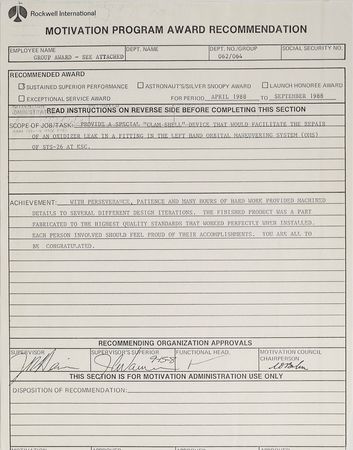 Rockwell International
MOTIVATION PROGRAM AWARD RECOMMENDATION
EMPLOYEE NAME DEPT. NAME DEPT. NO./GROUP SOCIAL SECURITY NO.
GROUP AWARD - SEE ATTACHED 062/064
RECOMMENDED AWARD
SUSTAINED SUPERIOR PERFORMANCE ASTRONAUT'S/SILVER SNOOPY AWARD LAUNCH HONOREE AWARD
EXCEPTIONAL SERVICE AWARD FOR PERIOD APRIL 1988 TO SEPTEMBER 1988
READ INSTRUCTIONS ON REVERSE SIDE BEFORE COMPLETING THIS SECTION
SCOPE OF JOB/TASK: PROVIDE A SPECIAL "CLAM-SHELL" DEVICE THAT WOULD FACILITATE THE REPAIR
OF AN OXIDIZER LEAK IN A FITTING IN THE LEFT HAND ORBITAL MANEUVERING SYSTEM (OMS)
OF STS-26 AT KSC.
ACHIEVEMENT: WITH PERSEVERANCE, PATIENCE AND MANY HOURS OF HARD WORK PROVIDED MACHINED
DETAILS TO SEVERAL DIFFERENT DESIGN ITERATIONS. THE FINISHED PRODUCT WAS A PART
FABRICATED TO THE HIGHEST QUALITY STANDARDS THAT WORKED PERFECTLY WHEN INSTALLED.
EACH PERSON INVOLVED SHOULD FEEL PROUD OF THEIR ACCOMPLISHMENTS. YOU ARE ALL TO
BE CONGRATULATED.
RECOMMENDING ORGANIZATION APPROVALS
SUPERVISOR SUPERVISOR'S SUPERIOR FUNCTIONAL HEAD. MOTIVATION COUNCIL
CHAIRPERSON
THIS SECTION IS FOR MOTIVATION ADMINISTRATION USE ONLY
DISPOSITION OF RECOMMENDATION: